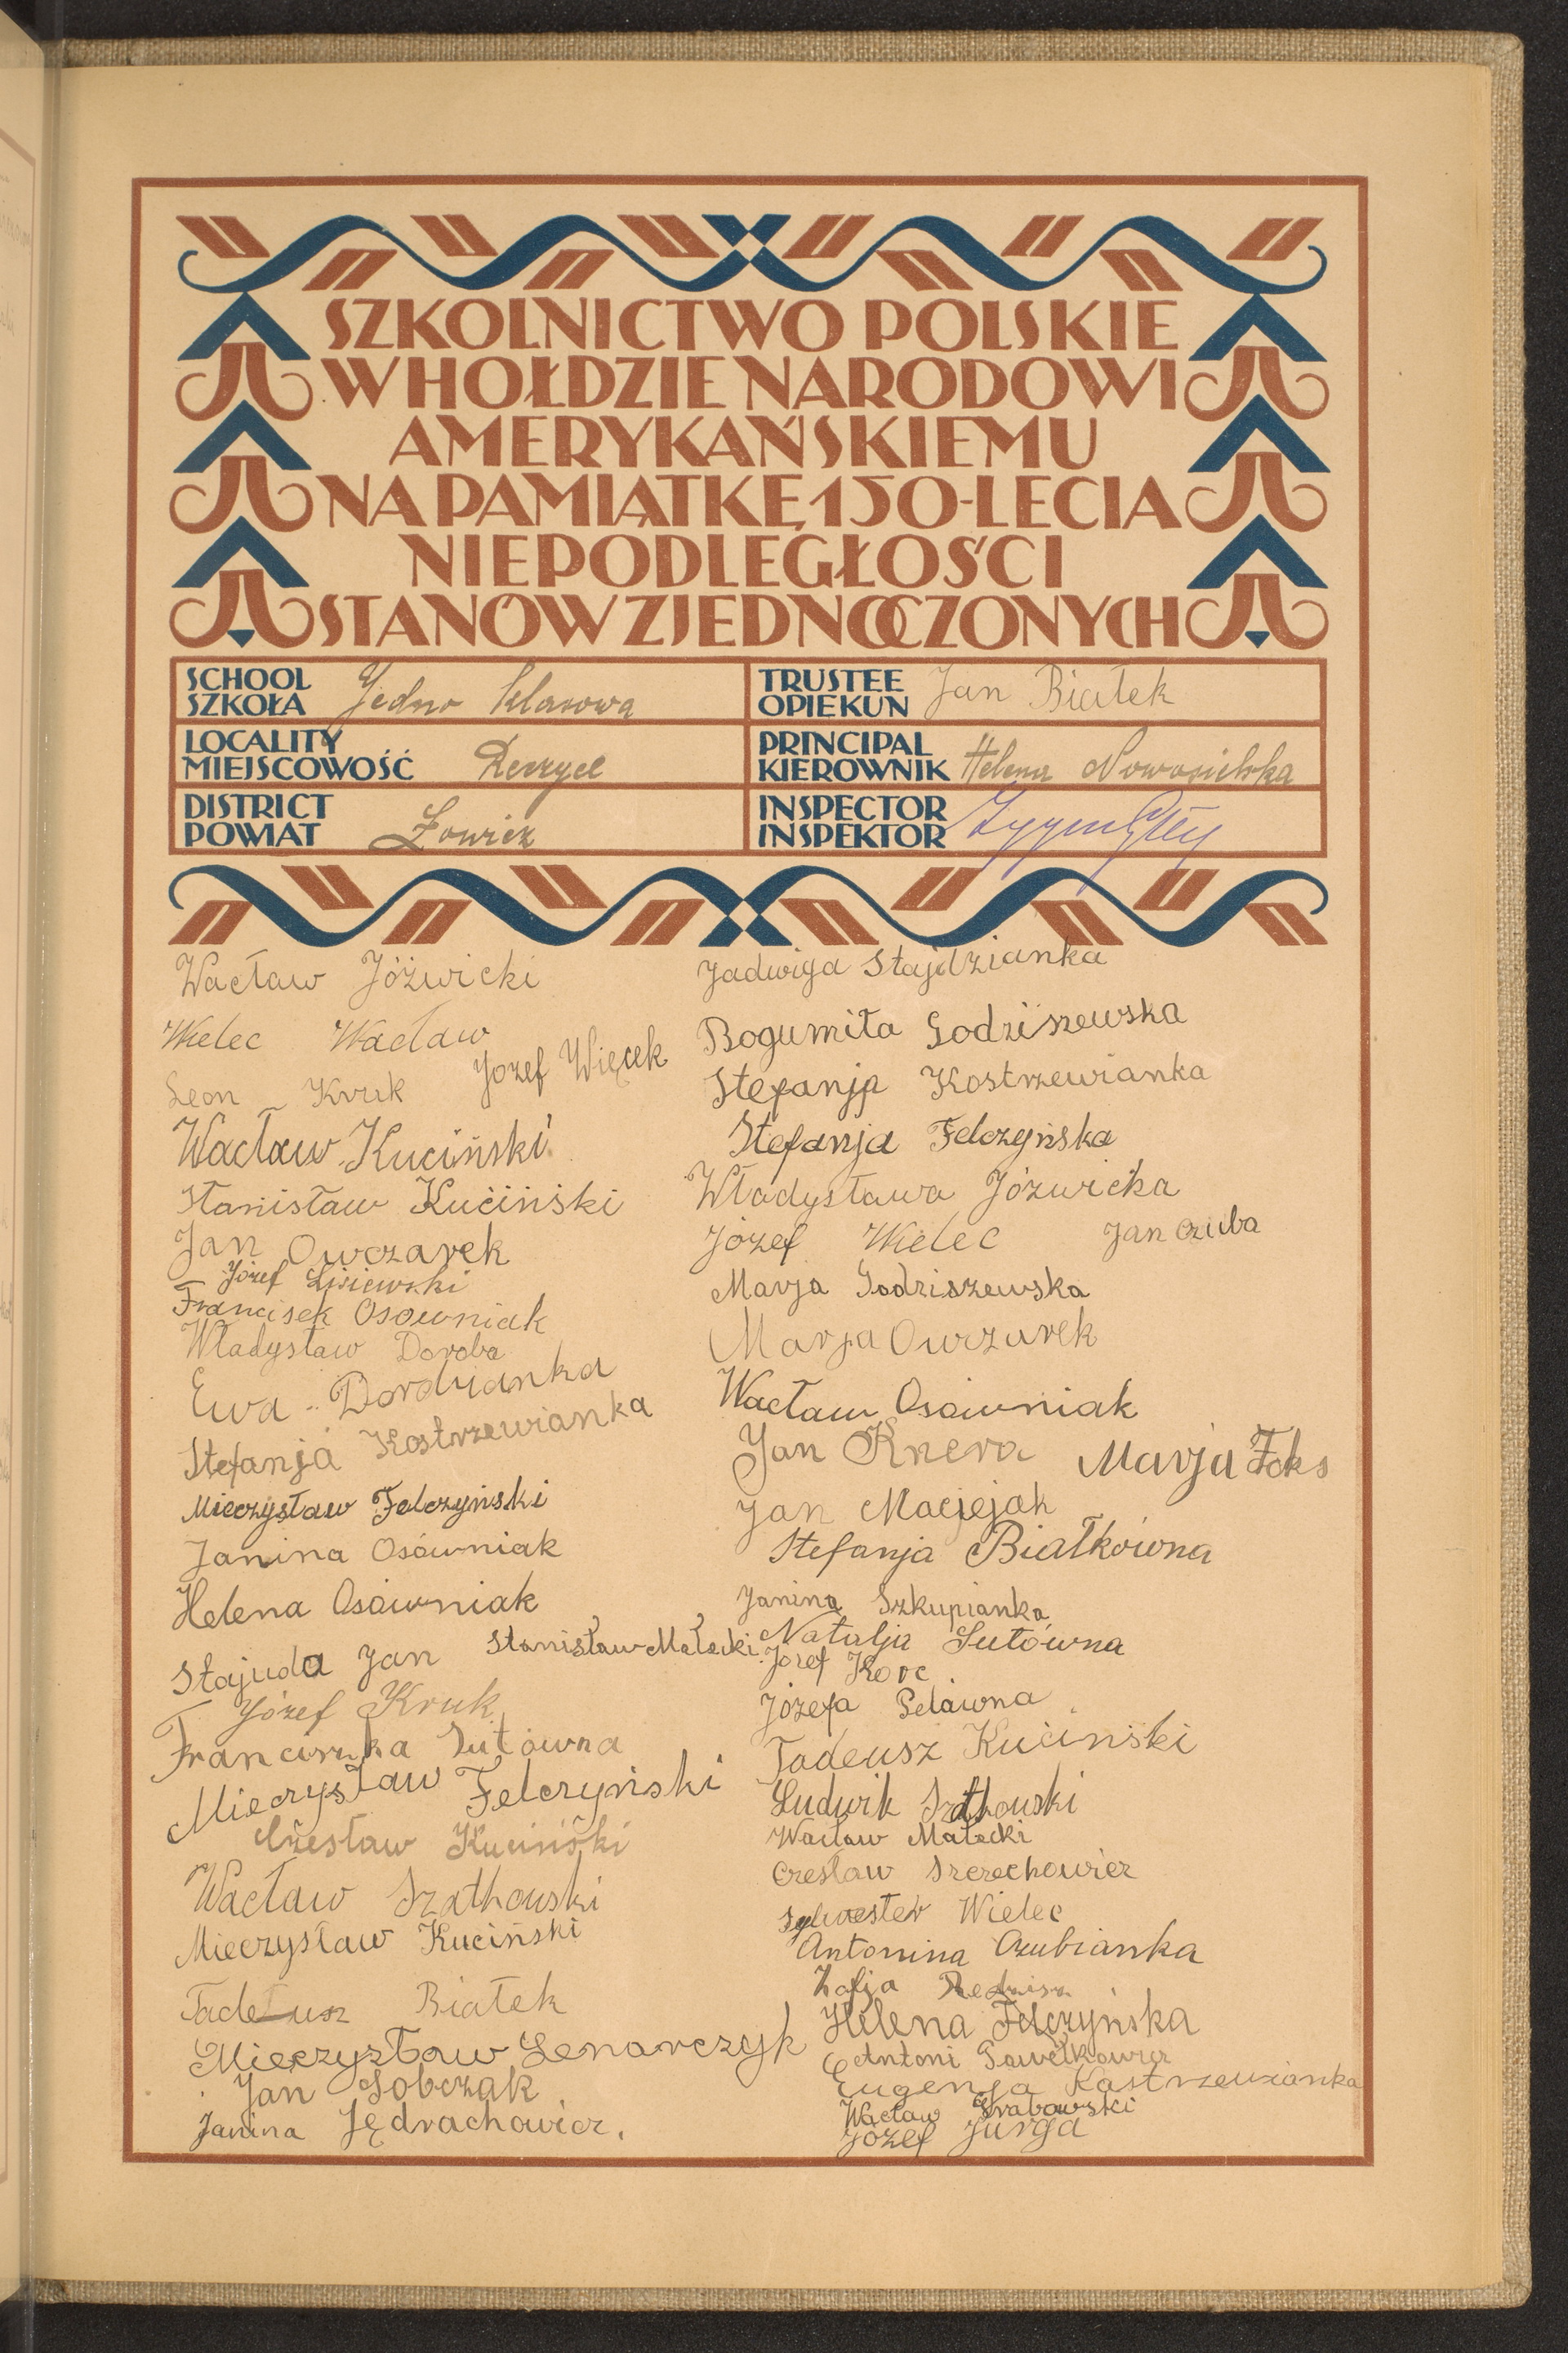 SZKOLNICTWO POLSKIE
W HOŁDZIE NARODOWI
AMERYKAŃSKIEMU
NA PAMIĄTKĘ 150-LECIA
NIEPODLEGŁOŚCI
STANÓW ZJEDNOCZONYCH
SCHOOL
SZKOŁA Jedno klasowa
TRUSTEE
OPIEKUN Jan Białek
LOCALITY
MIEJSCOWOŚĆ
PRINCIPAL
KIEROWNIK Helena Nowosielska
DISTRICT
POWIAT Łowicz
INSPECTOR
INSPEKTOR
Wacław Jóżwicki
Wielec Wacław
Józef Więcek
Leon Kruk
Wacław Kuciński
Stanisław Kuciński
Jan Owczarek
Józef Lisiewski
Francisek Osowniak
Władysław Doroba
Ewa
Stefanja Kostrzewianka
Mieczysław Felczyński
Janina Osówniak
Helena Osówniak
Stajuda Jan
Stanisław Małecki
Józef Kruk
Franciszka Sutówna
Mieczysław Felczyński
Czesław Kuciński
Wacław Szatkowski
Mieczysław Kuciński
Tadeusz Białek
Mieczysław Lenarczyk
Jan Sobczak
Janina Jędrachowicz.
Jadwiga Stajdzianka
Bogumiła Godziszewska
Stefanja Kostrzewianka
Stefanja Felczyńska
Władysława Józwicka
Józef Wielec
Jan Cziuba
Marja Godziszewska
Marja Owczarek
Wacław Osówniak
Jan Knera
Marja Foks
Jan Maciejak
Stefanja Białkówna
Janina Szkupianka
Natalja Sutówna
Józef Korc
Józefa Pelawna
Tadeusz Kuciński
Ludwik Szatkowski
Wacław Małecki
Czesław Szerechowicz
Sylwester Wielec
Antonina Czubianka
Zofja
Helena Felczyńska
Antoni Pawełkowicz
Eugenja Kastrzewianka
Wacław Grabowski
Józef Jurga